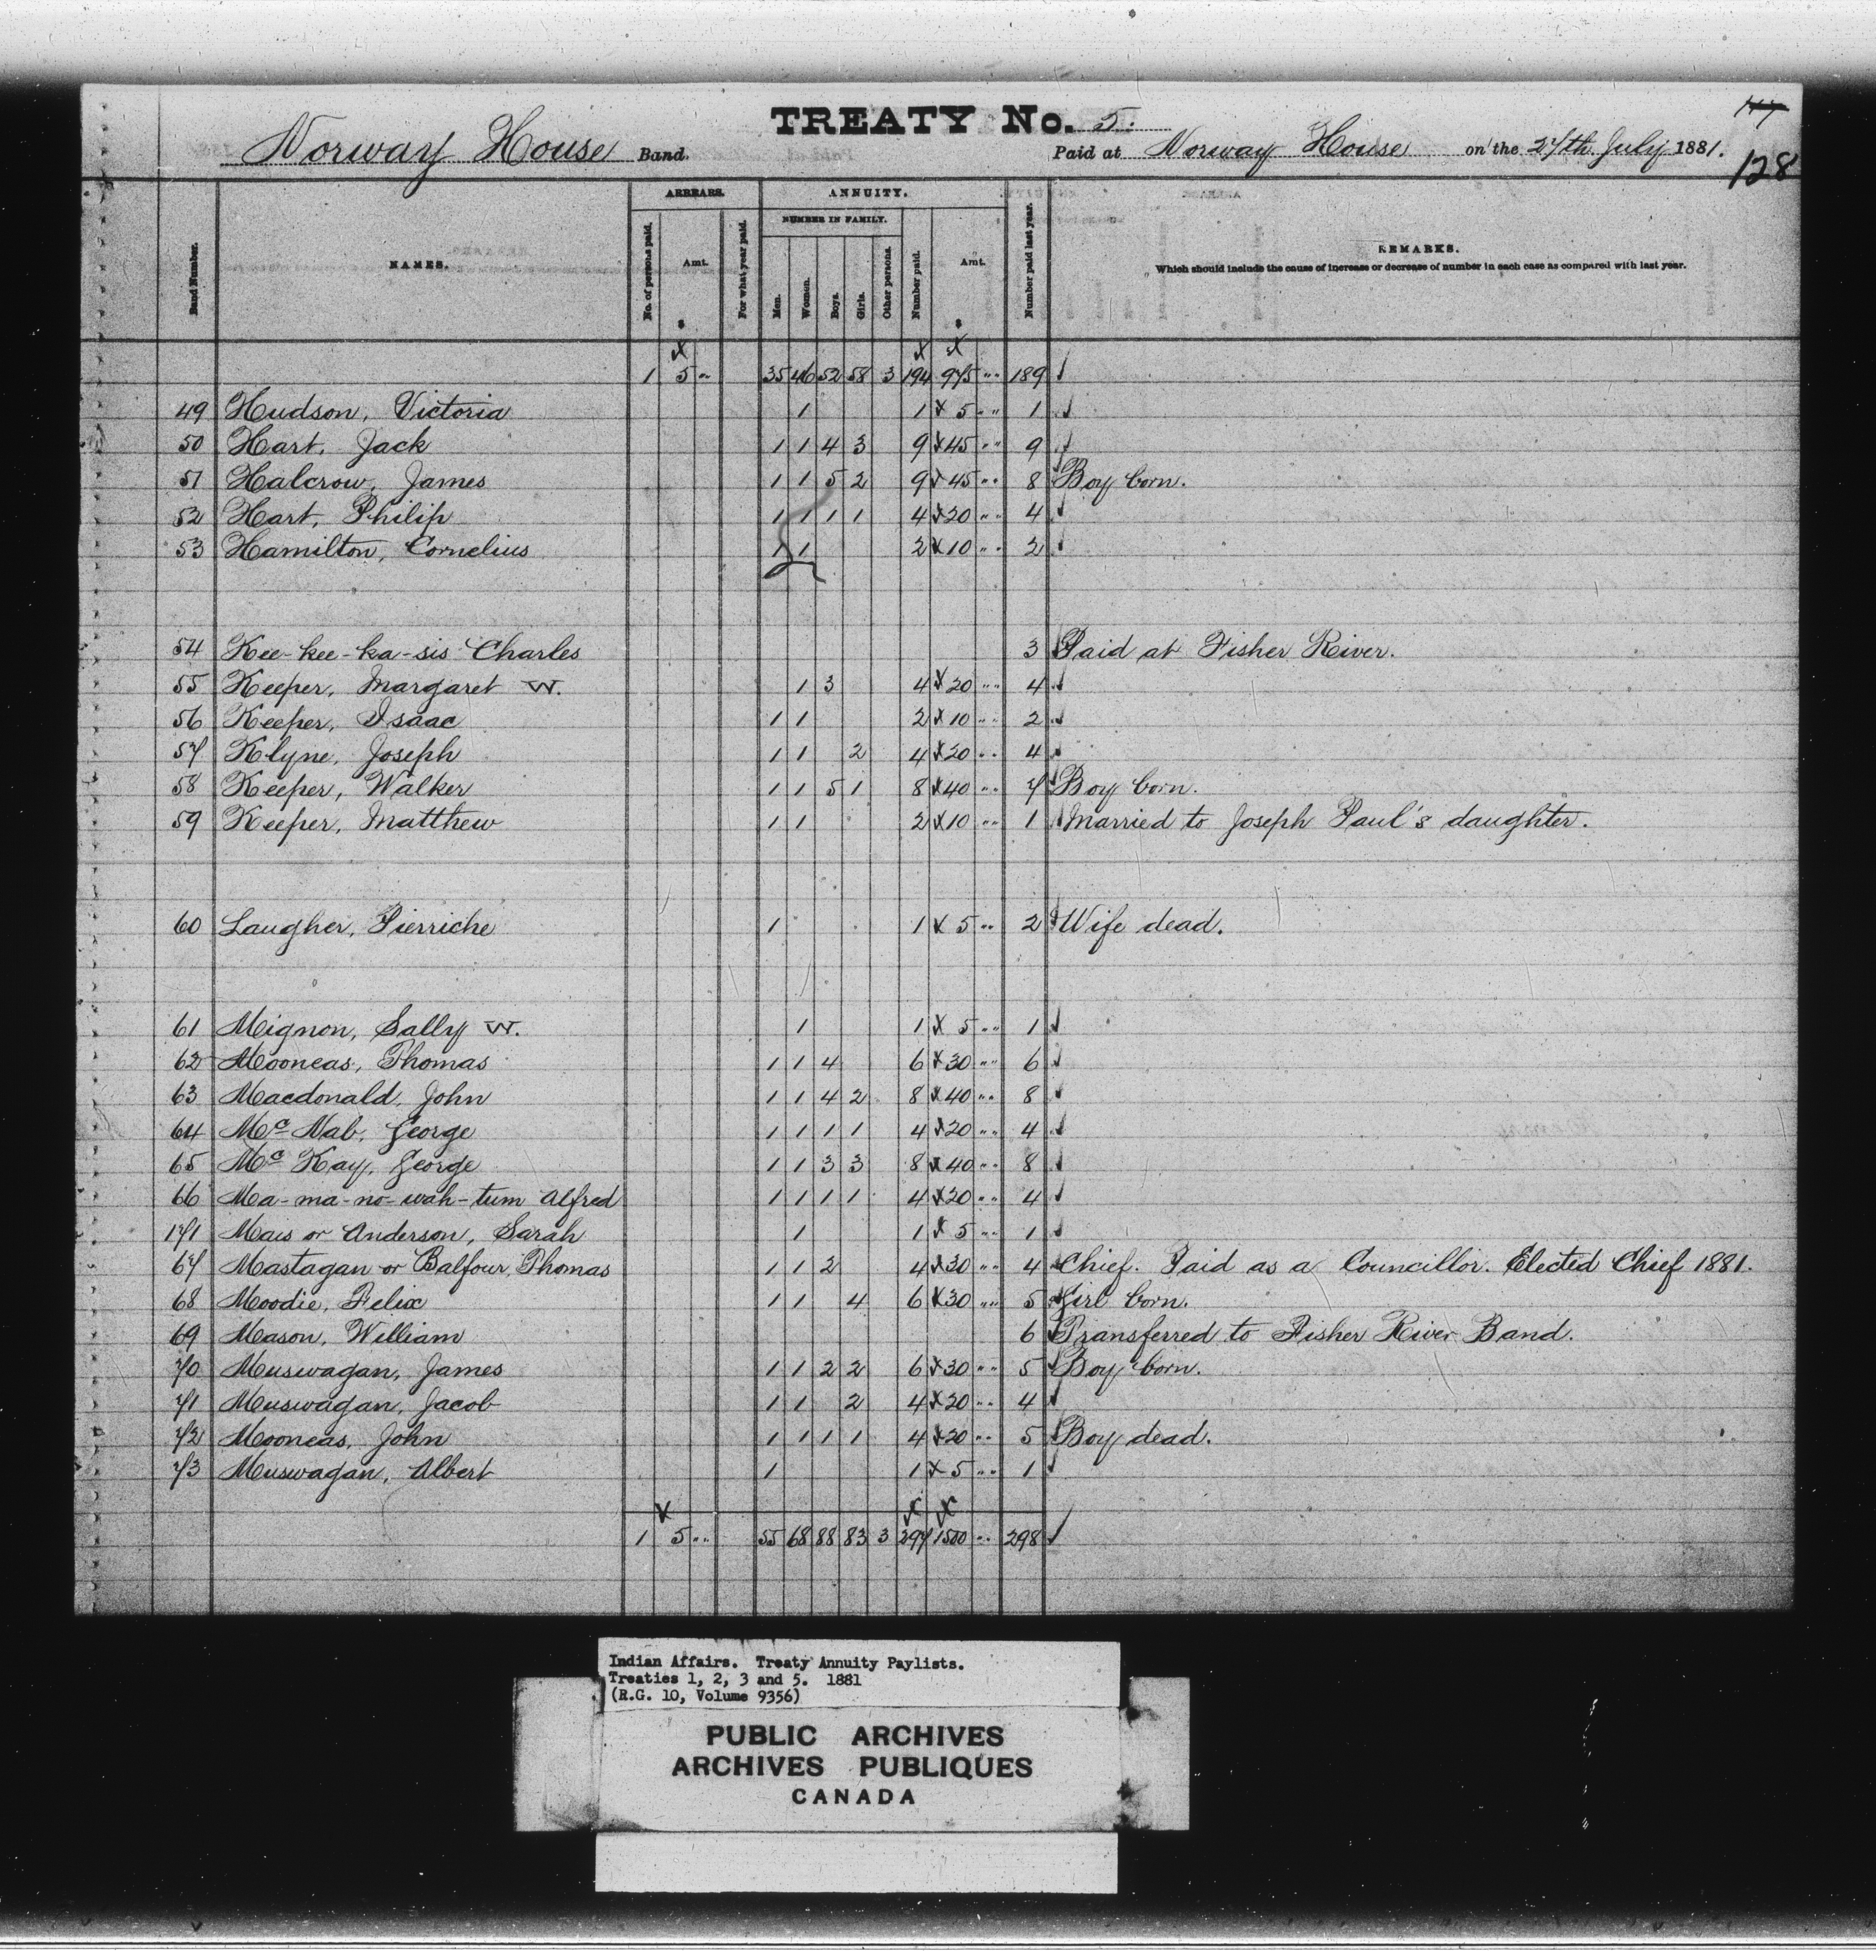 TREATY No. 5.
Norway House Band.
Paid at Norway House on the 27th July 1881.
128
Band Number.
NAMES.
ARREARS.
No. of persons paid.
Amt.
$
For what year paid.
ANNUITY.
NUMBER IN FAMILY.
Men.
Women.
Boys.
Girls.
Other persons.
Number paid.
Amt.
$
Number paid last year.
REMARKS.
Which should include the cause of increase or decrease of number in each case as compared with last year.
x x x
1 5 " 35 46 52 58 3 194 975 " 189 ✓
49 Hudson, Victoria 1 1 x 5 " 1 ✓
50 Hart, Jack 1 1 4 3 9 x 45 " 9 ✓
51 Halcrow, James 1 1 5 2 9 x 45 " 8 Boy born.
52 Hart, Philip 1 1 1 1 4 x 20 " 4 ✓
53 Hamilton, Cornelius 1 1 2 x 10 " 2 ✓
54 Kee-kee-ka-sis Charles 3 Paid at Fisher River.
55 Keeper, Margaret W. 1 3 4 x 20 " 4 ✓
56 Keeper, Isaac 1 1 2 x 10 " 2 ✓
57 Klyne, Joseph 1 1 2 4 x 20 " 4 ✓
58 Keeper, Walker 1 1 5 1 8 x 40 " 7 Boy born.
59 Keeper, Matthew 1 1 2 x 10 " 1 Married to Joseph Paul's daughter.
60 Laugher, Pierriche 1 1 x 5 " 2 Wife dead.
61 Mignon, Sally W. 1 1 x 5 " 1 ✓
62 Mooneas, Thomas 1 1 4 6 x 30 " 6 ✓
63 Macdonald, John 1 1 4 2 8 x 40 " 8 ✓
64 Mc Nab, George 1 1 1 1 4 x 20 " 4 ✓
65 Mc Kay, George 1 1 3 3 8 x 40 " 8 ✓
66 Ma-ma-no-wah-tum Alfred 1 1 1 1 4 x 20 " 4 ✓
171 Mais or Anderson, Sarah 1 1 x 5 " 1 ✓
67 Mastagan or Balfour, Thomas 1 1 2 4 x 30 " 4 Chief. Paid as a Councillor. Elected Chief 1881.
68 Moodie, Felix 1 1 4 6 x 30 " 5 Girl born.
69 Mason, William 6 Transferred to Fisher River Band.
70 Muswagan, James 1 1 2 2 6 x 30 " 5 Boy born.
71 Muswagan, Jacob 1 1 2 4 x 20 " 4 ✓
72 Mooneas, John 1 1 1 1 4 x 20 " 5 Boy dead.
73 Muswagan, Albert 1 1 x 5 " 1 ✓
x x x
1 5 " 55 68 88 83 3 297 1500 " 298 ✓
Indian Affairs. Treaty Annuity Paylists.
Treaties 1, 2, 3 and 5. 1881
(R.G. 10, Volume 9356)
PUBLIC ARCHIVES
ARCHIVES PUBLIQUES
CANADA